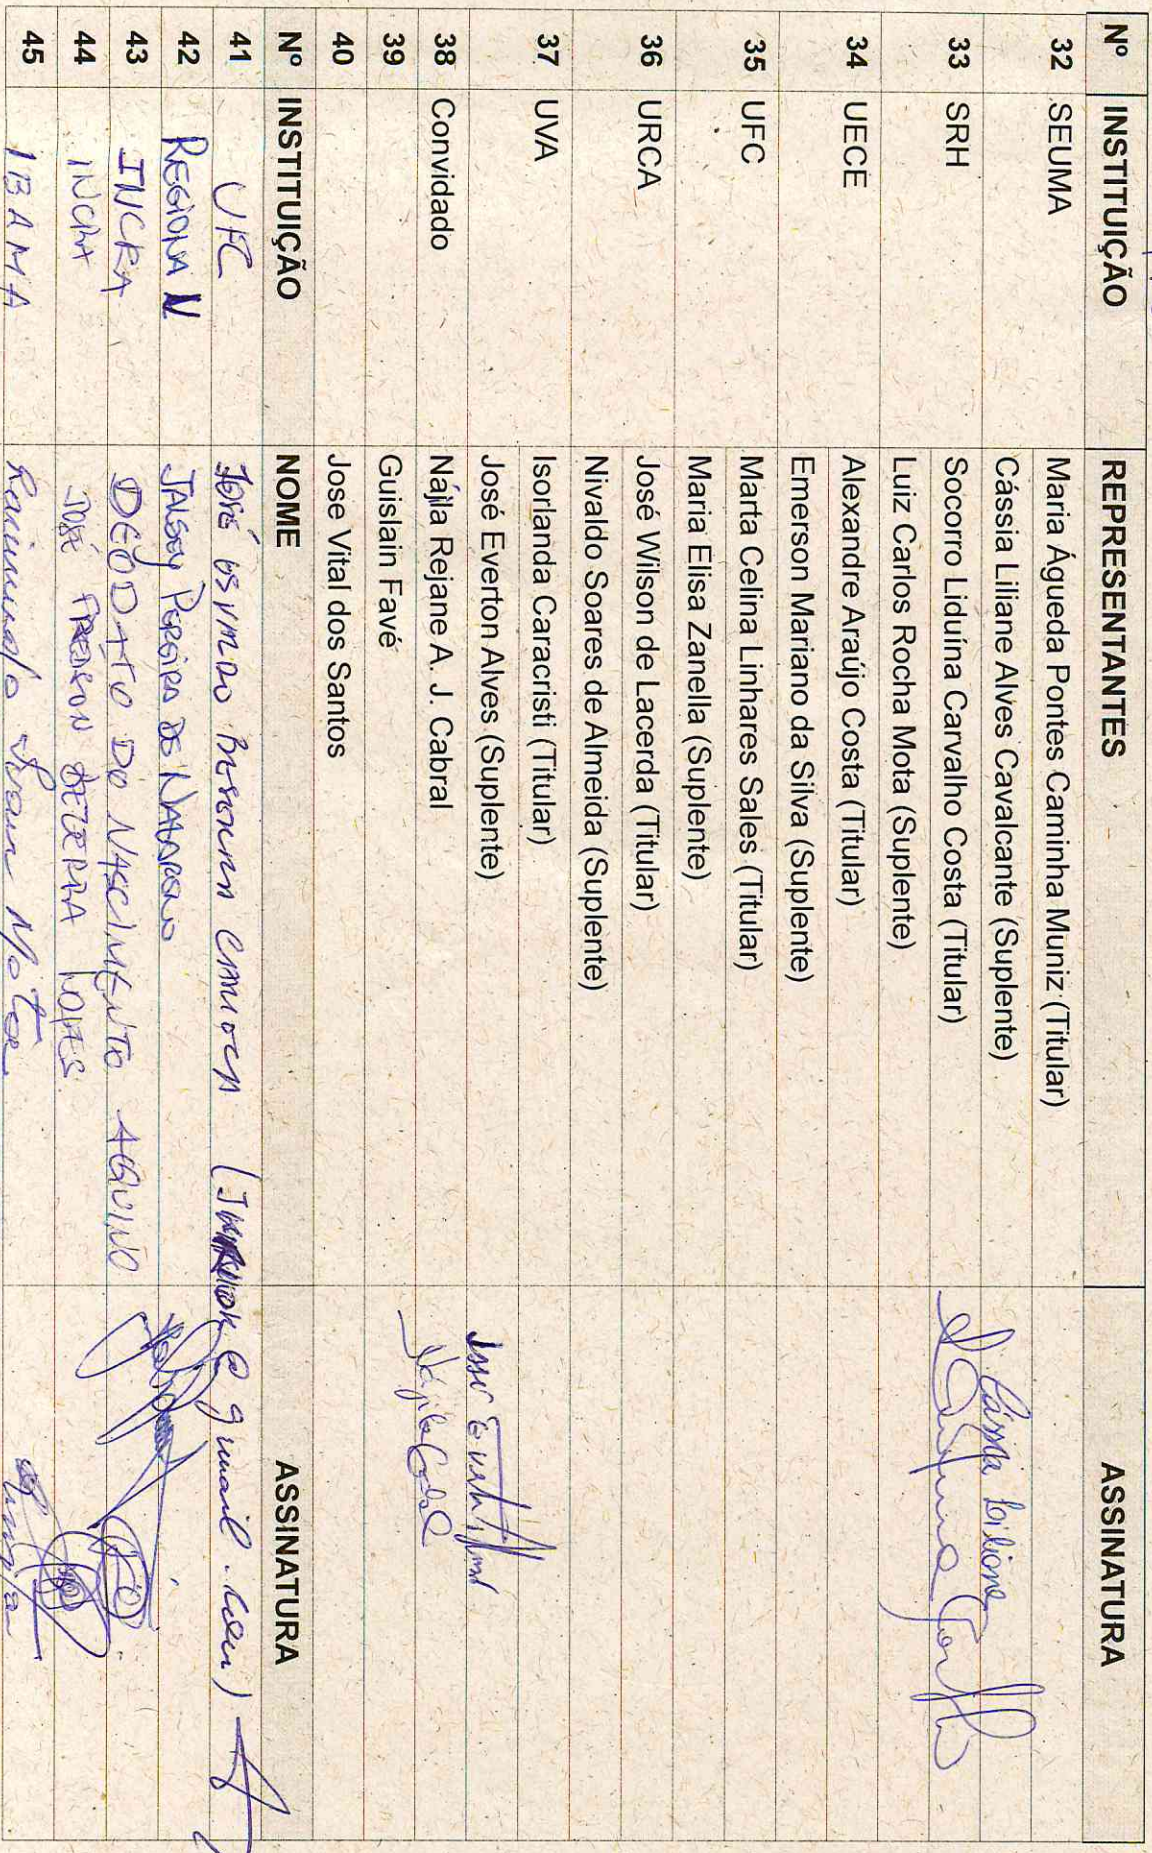 Nº INSTITUIÇÃO REPRESENTANTES ASSINATURA
32 SEUMA Maria Águeda Pontes Caminha Muniz (Titular)
Cássia Liliane Alves Cavalcante (Suplente) Cássia Liliane
33 SRH Socorro Liduína Carvalho Costa (Titular)
Luiz Carlos Rocha Mota (Suplente)
34 UECE Alexandre Araújo Costa (Titular)
Emerson Mariano da Silva (Suplente)
35 UFC Marta Celina Linhares Sales (Titular)
Maria Elisa Zanella (Suplente)
36 URCA José Wilson de Lacerda (Titular)
Nivaldo Soares de Almeida (Suplente)
37 UVA Isorlanda Caracristi (Titular)
José Everton Alves (Suplente) José Everton
38 Convidado Nájila Rejane A. J. Cabral Nájila Cabral
39 Guislain Favé
40 Jose Vital dos Santos
Nº INSTITUIÇÃO NOME ASSINATURA
41 UFC José @ gmail.com)
42 REGIONA IV Pereira de
43 INCRA DEODATO DO NASCIMENTO AQUINO
44 INCRA JOSÉ LOPES
45 IBAMA Raimundo Ivan Mota